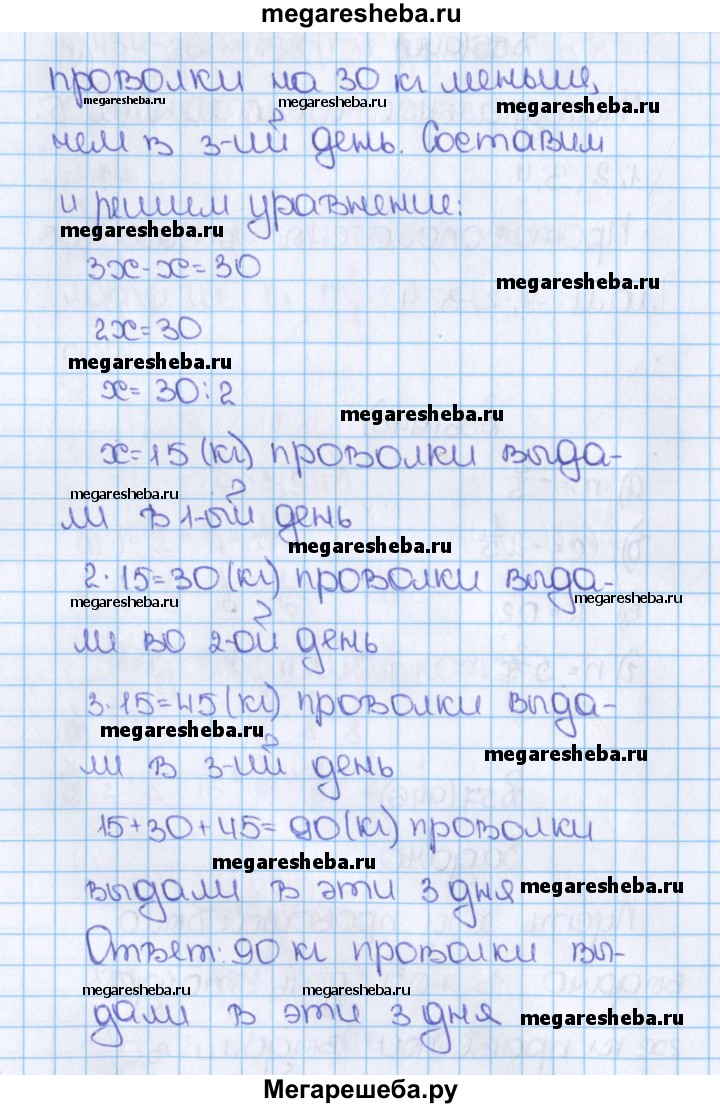 megaresheba.ru
проволки на 30 кг меньше,
megaresheba.ru megaresheba.ru megaresheba.ru
чем в 3-ий день. Составим
и решим уравнение:
megaresheba.ru
3x-x=30
megaresheba.ru
2x=30
megaresheba.ru
x= 30:2
megaresheba.ru
x=15 (кг) проволки выда-
megaresheba.ru
ли в 1-ый день
megaresheba.ru
2·15=30(кг) проволки выда-
megaresheba.ru megaresheba.ru
ли во 2-ой день
3·15=45(кг) проволки выда-
megaresheba.ru megaresheba.ru
ли в 3-ий день
15+30+45=90(кг) проволки
megaresheba.ru
выдали в эти 3 дня megaresheba.ru
Ответ: 90 кг проволки вы-
megaresheba.ru megaresheba.ru
дали в эти 3 дня megaresheba.ru
Мегарешеба.ру